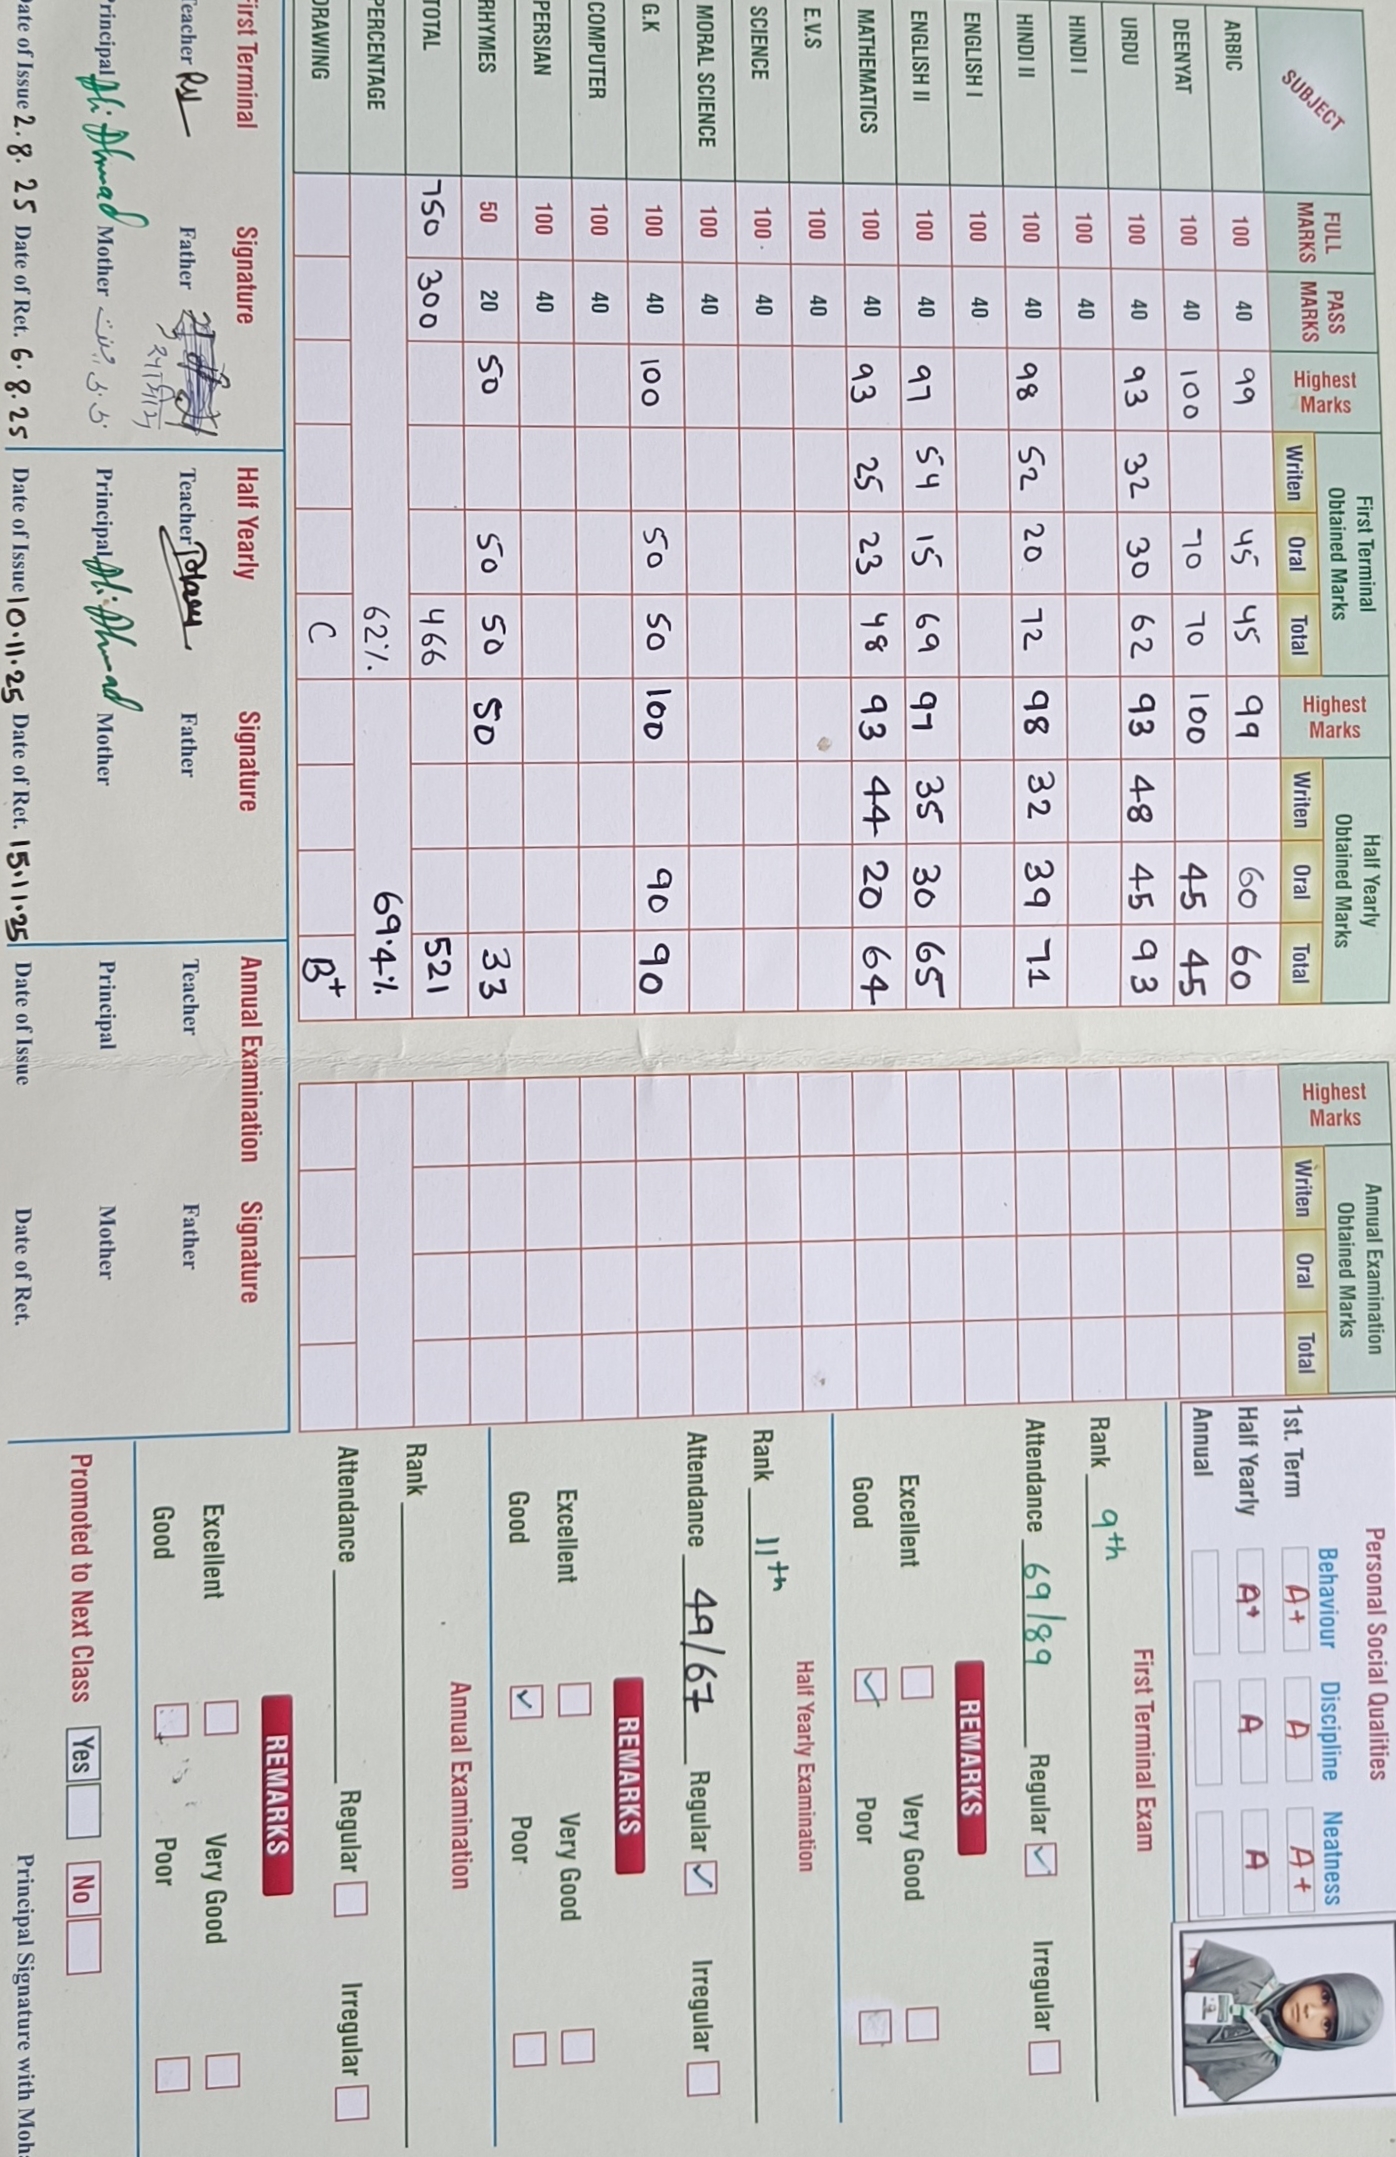 SUBJECT FULL MARKS PASS MARKS Highest Marks First Terminal Obtained Marks Writen Oral Total Highest Marks Half Yearly Obtained Marks Writen Oral Total Highest Marks Annual Examination Obtained Marks Writen Oral Total
ARBIC 100 40 99 45 45 99 60 60
DEENYAT 100 40 100 70 70 100 45 45
URDU 100 40 93 32 30 62 93 48 45 93
HINDI I 100 40
HINDI II 100 40 98 52 20 72 98 32 39 71
ENGLISH I 100 40
ENGLISH II 100 40 97 54 15 69 97 35 30 65
MATHEMATICS 100 40 93 25 23 48 93 44 20 64
E.V.S 100 40
SCIENCE 100 40
MORAL SCIENCE 100 40
G.K 100 40 100 50 50 100 90 90
COMPUTER 100 40
PERSIAN 100 40
RHYMES 50 20 50 50 50 50 33
TOTAL 750 300 466 521
PERCENTAGE 62% 69.4%
DRAWING C B+
First Terminal Signature Half Yearly Signature Annual Examination Signature
Teacher Father Teacher Father Teacher Father
Principal Ali Ahmad Mother Principal Ali Ahmad Mother Principal Mother
Date of Issue 2.8.25 Date of Ret. 6.8.25 Date of Issue 10.11.25 Date of Ret. 15.11.25 Date of Issue Date of Ret.
Personal Social Qualities
Behaviour Discipline Neatness
1st. Term A+ A A+
Half Yearly A+ A A
Annual
First Terminal Exam
Rank 9th
Attendance 69/89 Regular ✓ Irregular
REMARKS
Excellent Very Good
Good ✓ Poor
Half Yearly Examination
Rank 11th
Attendance 49/67 Regular ✓ Irregular
REMARKS
Excellent Very Good
Good ✓ Poor
Annual Examination
Rank
Attendance Regular Irregular
REMARKS
Excellent Very Good
Good Poor
Promoted to Next Class Yes No
Principal Signature with